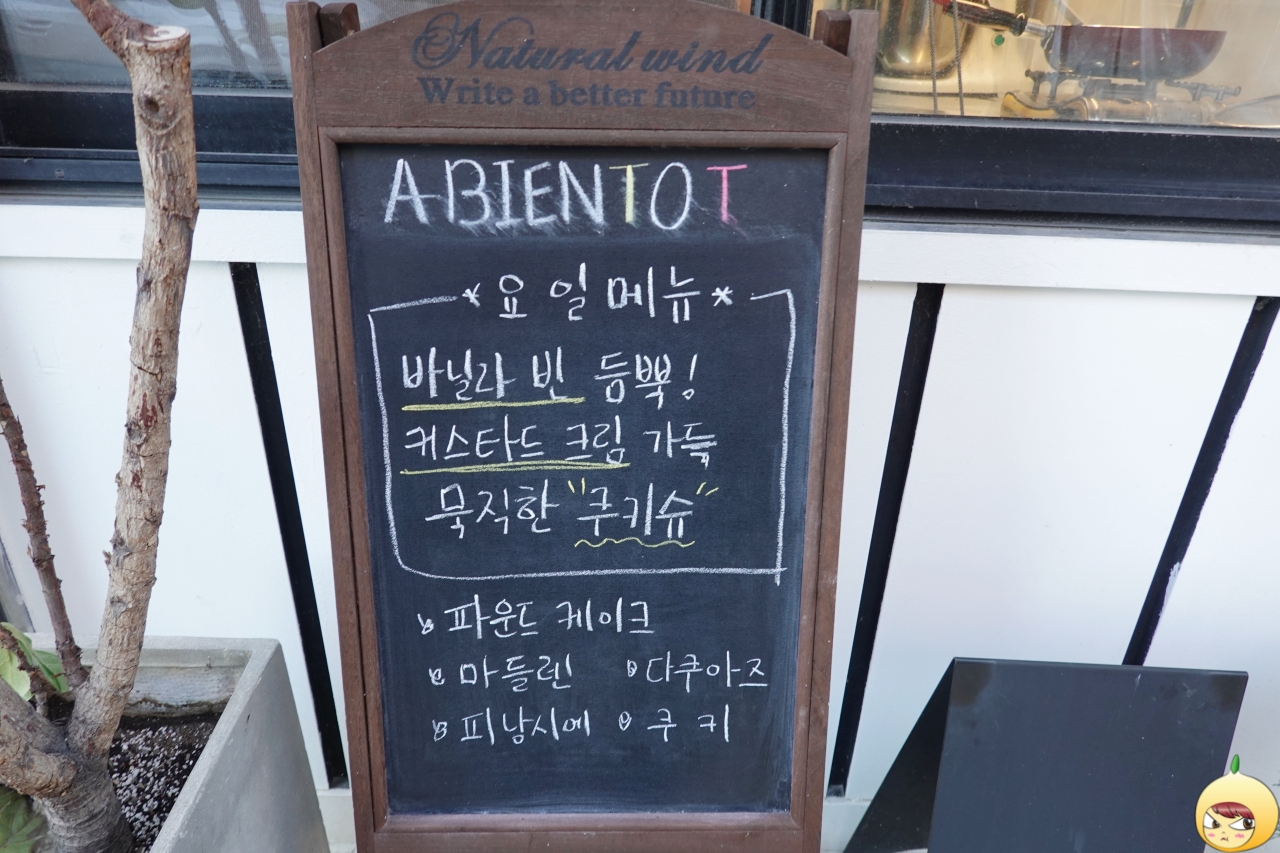 Natural wind
Write a better future
ABIENTOT
* 요일메뉴 *
바닐라 빈 듬뿍!
커스타드 크림 가득
묵직한 "쿠키슈"
파운드 케이크
마들렌 다쿠아즈
피남시에 쿠키